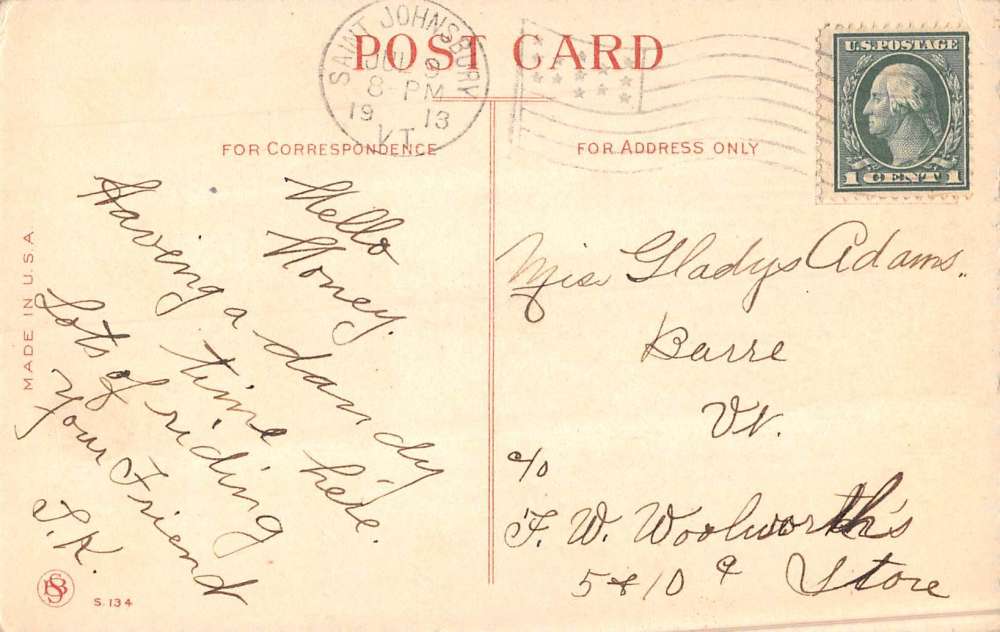 POST CARD
SAINT JOHNSBURY
JUL 9
8-PM
19 13
VT.
U.S. POSTAGE
1 CENT 1
FOR CORRESPONDENCE
FOR ADDRESS ONLY
Hello
Honey.
Having a dandy
time here.
Lots of riding
Your Friend
J.K.
Miss Gladys Adams.
Barre
Vt.
c/o
F. W. Woolworth's
5 & 10 ¢ Store
MADE IN U.S.A.
SB
S. 134